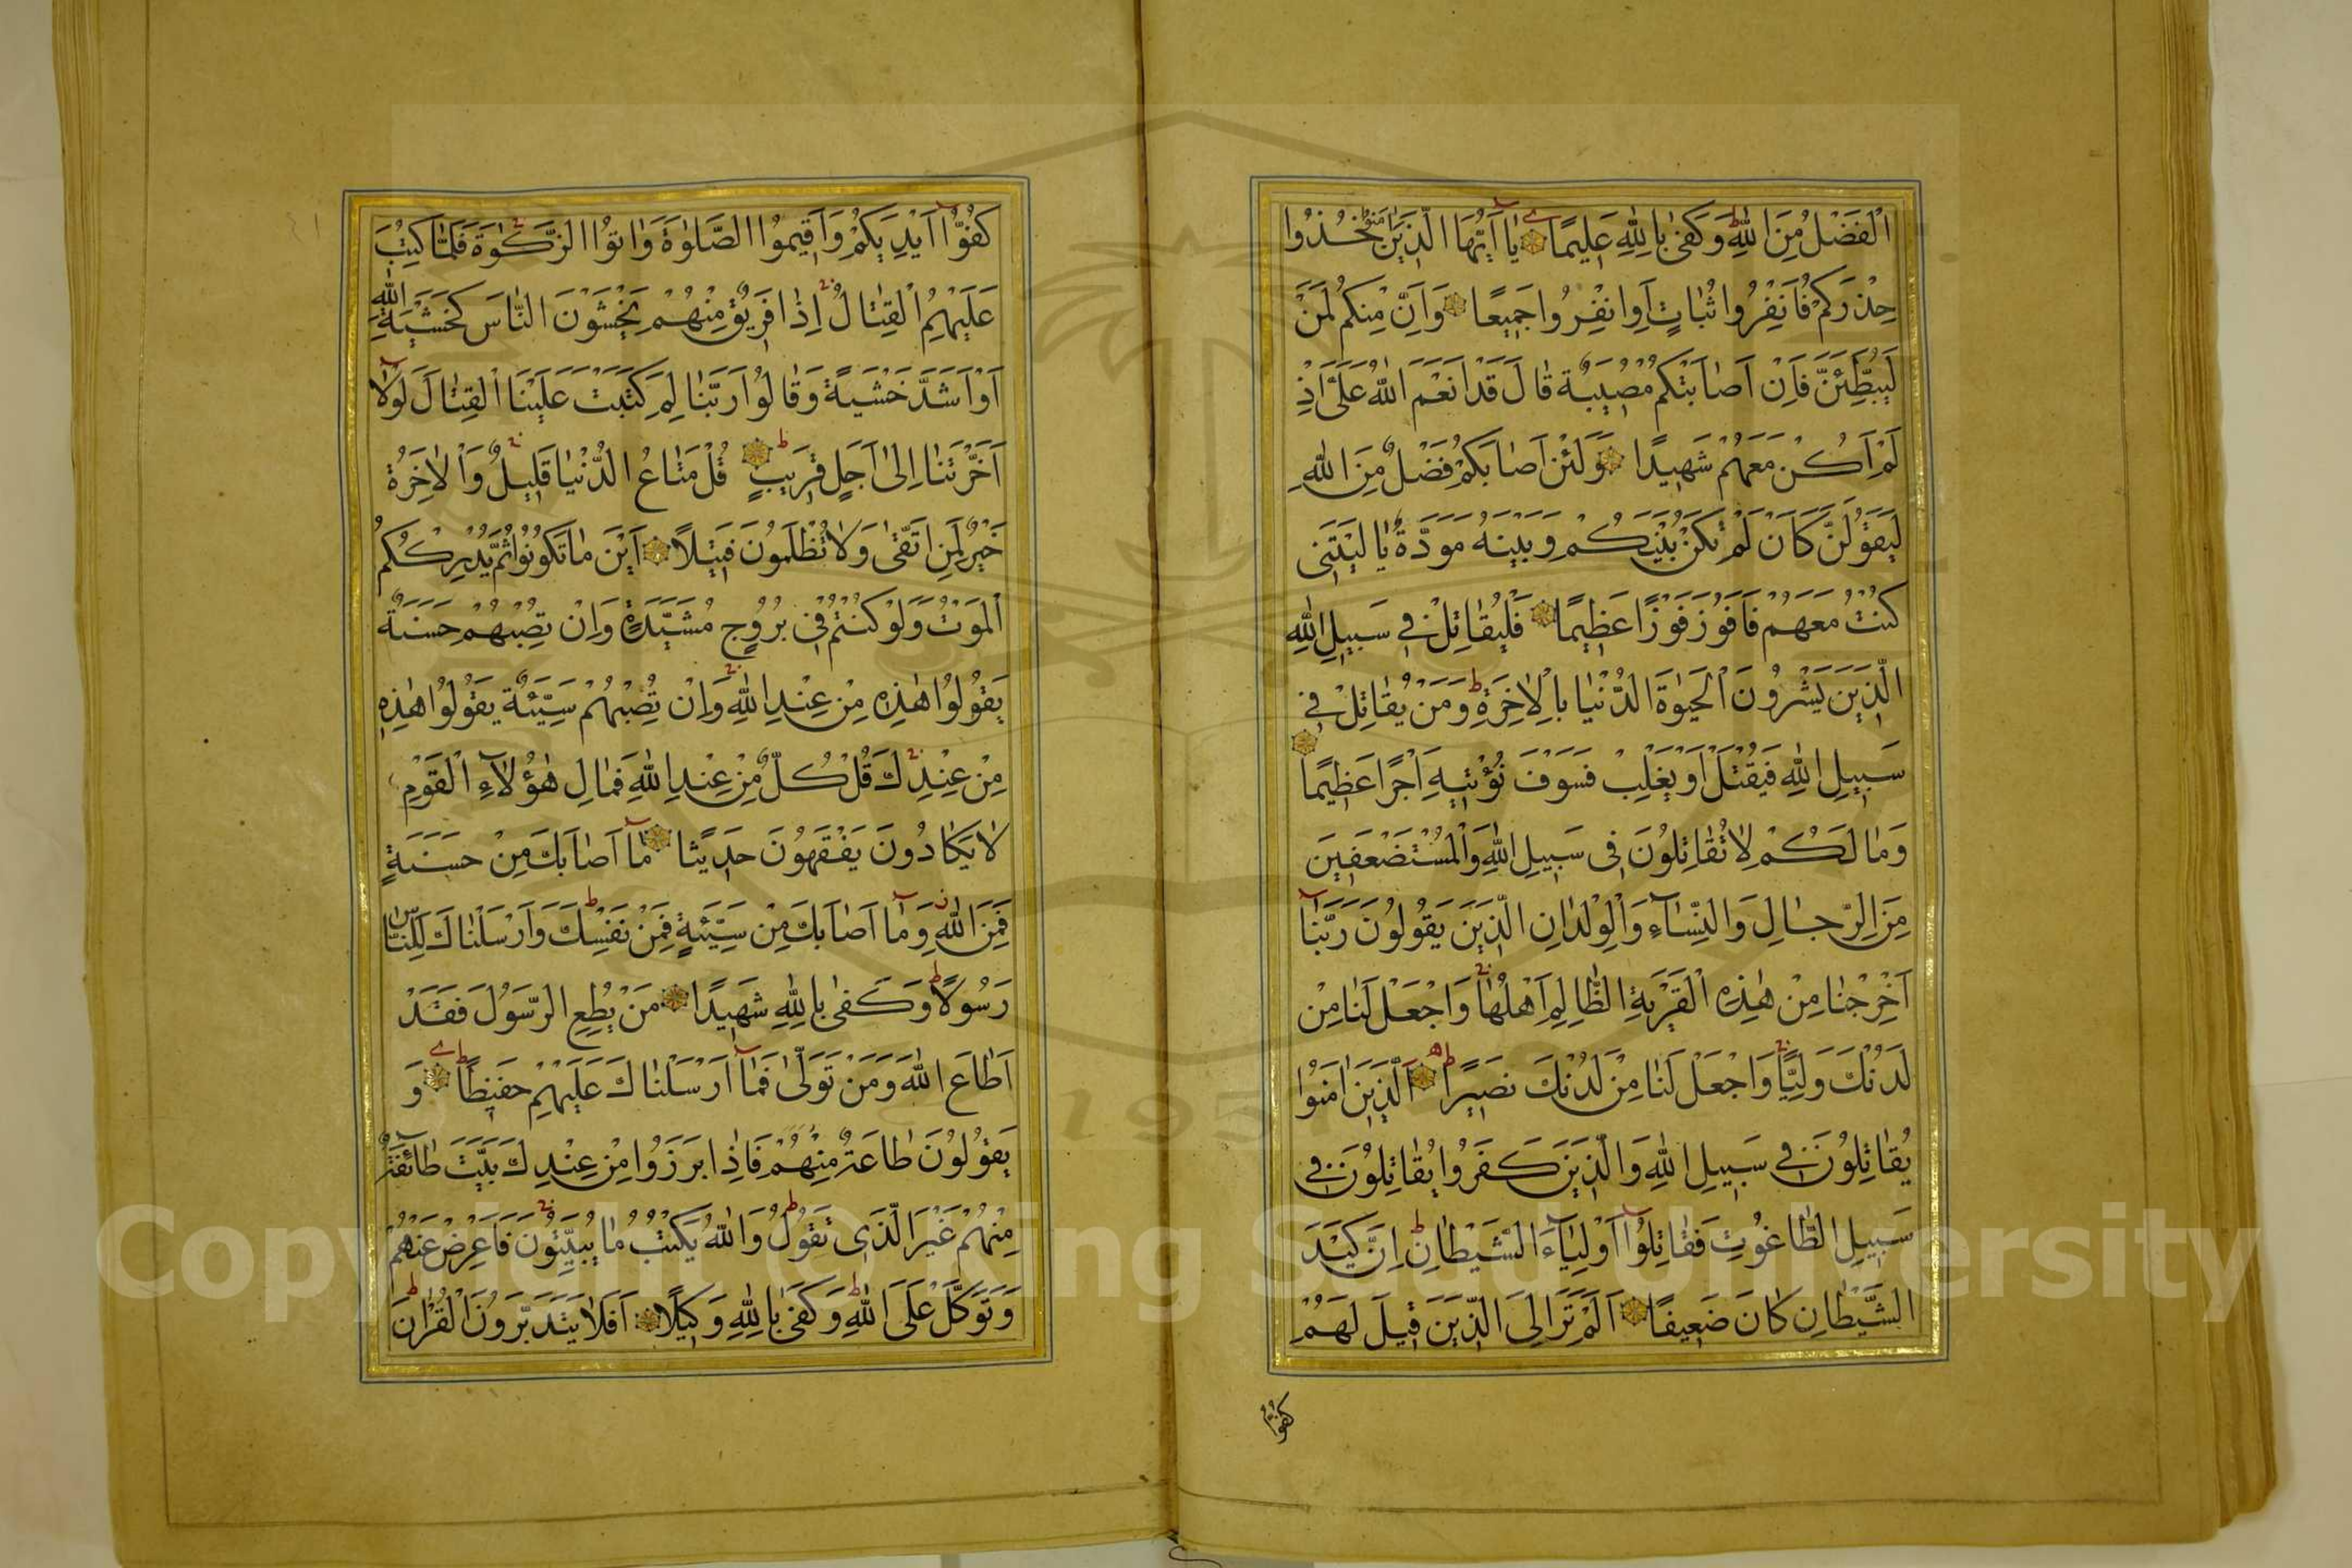 الْفَضْلُ مِنَ اللّٰهِ وَكَفٰى بِاللّٰهِ عَلِيمًا يَا اَيُّهَا الَّذِينَ اٰمَنُوا خُذُوا
حِذْرَكُمْ فَانْفِرُوا ثُبَاتٍ اَوِ انْفِرُوا جَمِيعًا وَاِنَّ مِنْكُمْ لَمَنْ
لَيُبَطِّئَنَّ فَاِنْ اَصَابَتْكُمْ مُصِيبَةٌ قَالَ قَدْ اَنْعَمَ اللّٰهُ عَلَىَّ اِذْ
لَمْ اَكُنْ مَعَهُمْ شَهِيدًا وَلَئِنْ اَصَابَكُمْ فَضْلٌ مِنَ اللّٰهِ
لَيَقُولَنَّ كَاَنْ لَمْ تَكُنْ بَيْنَكُمْ وَبَيْنَهُ مَوَدَّةٌ يَا لَيْتَنِى
كُنْتُ مَعَهُمْ فَاَفُوزَ فَوْزًا عَظِيمًا فَلْيُقَاتِلْ فِى سَبِيلِ اللّٰهِ
الَّذِينَ يَشْرُونَ الْحَيٰوةَ الدُّنْيَا بِالْاٰخِرَةِ وَمَنْ يُقَاتِلْ فِى
سَبِيلِ اللّٰهِ فَيُقْتَلْ اَوْ يَغْلِبْ فَسَوْفَ نُؤْتِيهِ اَجْرًا عَظِيمًا
وَمَا لَكُمْ لَا تُقَاتِلُونَ فِى سَبِيلِ اللّٰهِ وَالْمُسْتَضْعَفِينَ
مِنَ الرِّجَالِ وَالنِّسَآءِ وَالْوِلْدَانِ الَّذِينَ يَقُولُونَ رَبَّنَآ
اَخْرِجْنَا مِنْ هٰذِهِ الْقَرْيَةِ الظَّالِمِ اَهْلُهَا وَاجْعَلْ لَنَا مِنْ
لَدُنْكَ وَلِيًّا وَاجْعَلْ لَنَا مِنْ لَدُنْكَ نَصِيرًا اَلَّذِينَ اٰمَنُوا
يُقَاتِلُونَ فِى سَبِيلِ اللّٰهِ وَالَّذِينَ كَفَرُوا يُقَاتِلُونَ فِى
سَبِيلِ الطَّاغُوتِ فَقَاتِلُوٓا اَوْلِيَآءَ الشَّيْطَانِ اِنَّ كَيْدَ
الشَّيْطَانِ كَانَ ضَعِيفًا اَلَمْ تَرَ اِلَى الَّذِينَ قِيلَ لَهُمْ
كُفُّوٓا
كُفُّوٓا اَيْدِيَكُمْ وَاَقِيمُوا الصَّلٰوةَ وَاٰتُوا الزَّكٰوةَ فَلَمَّا كُتِبَ
عَلَيْهِمُ الْقِتَالُ اِذَا فَرِيقٌ مِنْهُمْ يَخْشَوْنَ النَّاسَ كَخَشْيَةِ اللّٰهِ
اَوْ اَشَدَّ خَشْيَةً وَقَالُوا رَبَّنَا لِمَ كَتَبْتَ عَلَيْنَا الْقِتَالَ لَوْلَآ
اَخَّرْتَنَا اِلٰى اَجَلٍ قَرِيبٍ قُلْ مَتَاعُ الدُّنْيَا قَلِيلٌ وَالْاٰخِرَةُ
خَيْرٌ لِمَنِ اتَّقٰى وَلَا تُظْلَمُونَ فَتِيلًا اَيْنَ مَا تَكُونُوا يُدْرِكْكُمُ
الْمَوْتُ وَلَوْ كُنْتُمْ فِى بُرُوجٍ مُشَيَّدَةٍ وَاِنْ تُصِبْهُمْ حَسَنَةٌ
يَقُولُوا هٰذِهِ مِنْ عِنْدِ اللّٰهِ وَاِنْ تُصِبْهُمْ سَيِّئَةٌ يَقُولُوا هٰذِهِ
مِنْ عِنْدِكَ قُلْ كُلٌّ مِنْ عِنْدِ اللّٰهِ فَمَالِ هٰؤُلَآءِ الْقَوْمِ
لَا يَكَادُونَ يَفْقَهُونَ حَدِيثًا مَآ اَصَابَكَ مِنْ حَسَنَةٍ
فَمِنَ اللّٰهِ وَمَآ اَصَابَكَ مِنْ سَيِّئَةٍ فَمِنْ نَفْسِكَ وَاَرْسَلْنَاكَ لِلنَّاسِ
رَسُولًا وَكَفٰى بِاللّٰهِ شَهِيدًا مَنْ يُطِعِ الرَّسُولَ فَقَدْ
اَطَاعَ اللّٰهَ وَمَنْ تَوَلّٰى فَمَآ اَرْسَلْنَاكَ عَلَيْهِمْ حَفِيظًا وَ
يَقُولُونَ طَاعَةٌ مِنْهُمْ فَاِذَا بَرَزُوا مِنْ عِنْدِكَ بَيَّتَ طَآئِفَةٌ
مِنْهُمْ غَيْرَ الَّذِى تَقُولُ وَاللّٰهُ يَكْتُبُ مَا يُبَيِّتُونَ فَاَعْرِضْ عَنْهُمْ
وَتَوَكَّلْ عَلَى اللّٰهِ وَكَفٰى بِاللّٰهِ وَكِيلًا اَفَلَا يَتَدَبَّرُونَ الْقُرْاٰنَ
1957
Copyright © King Saud University